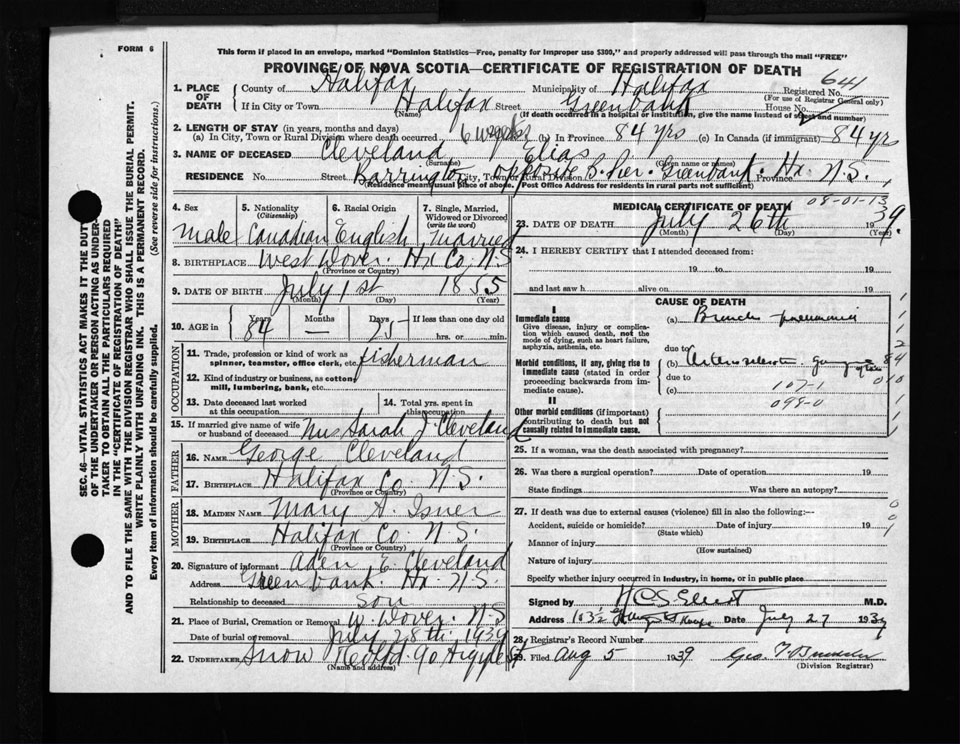 FORM 6
This form if placed in an envelope, marked "Dominion Statistics—Free, penalty for improper use $300," and properly addressed will pass through the mail "FREE"
PROVINCE OF NOVA SCOTIA—CERTIFICATE OF REGISTRATION OF DEATH
641
1. PLACE OF DEATH County of Halifax Municipality of Halifax Registered No.
(For use of Registrar General only)
If in City or Town Halifax Street Greenbank House No.
(Name) (If death occurred in a hospital or institution, give the name instead of street and number)
2. LENGTH OF STAY (in years, months and days)
(a) In City, Town or Rural Division where death occurred 6 weeks (b) In Province 84 yrs (c) In Canada (if immigrant) 84 yr
3. NAME OF DECEASED Cleveland Elias
(Surname) (Given name or names)
RESIDENCE No. Street Barrington City, Town or Rural Division opposite B. Pier. Greenbank Province Hx. N.S.
(Residence means usual place of abode. Post Office Address for residents in rural parts not sufficient)
4. Sex 5. Nationality (Citizenship) 6. Racial Origin 7. Single, Married, Widowed or Divorced (write the word)
Male Canadian English Married
8. BIRTHPLACE West Dover. Hx Co. N.S
(Province or Country)
9. DATE OF BIRTH July 1st 1855
(Month) (Day) (Year)
10. AGE in Years Months Days If less than one day old
84 — 25 hrs. or min.
OCCUPATION
11. Trade, profession or kind of work as spinner, teamster, office clerk, etc. fisherman
12. Kind of industry or business, as cotton mill, lumbering, bank, etc.
13. Date deceased last worked at this occupation
14. Total yrs. spent in this occupation
15. If married give name of wife or husband of deceased Mrs Sarah J Cleveland
FATHER
16. NAME George Cleveland
17. BIRTHPLACE Halifax Co. N.S.
(Province or Country)
MOTHER
18. MAIDEN NAME Mary A. Isner
19. BIRTHPLACE Halifax Co. N.S.
(Province or Country)
20. Signature of informant Aden E. Cleveland
Address Greenbank. Hx. N.S.
Relationship to deceased son
21. Place of Burial, Cremation or Removal W. Dover. N.S
Date of burial or removal July 28th, 1939
22. UNDERTAKER Snow & Co Ltd 90 Argyle St
(Name and address)
MEDICAL CERTIFICATE OF DEATH
08-01-13
23. DATE OF DEATH July 26th 1939.
(Month) (Day) (Year)
24. I HEREBY CERTIFY that I attended deceased from:
19 to 19
and last saw h alive on 19
CAUSE OF DEATH
I
Immediate cause
Give disease, injury or complication which caused death, not the mode of dying, such as heart failure, asphyxia, asthenia, etc.
(a) Broncho pneumonia
due to
Morbid conditions, if any, giving rise to immediate cause (stated in order proceeding backwards from immediate cause).
(b) Arteriosclerotic gangrene
due to
(c) 107-1
098-0
II
Other morbid conditions (if important) contributing to death but not causally related to immediate cause.
1
1
1
2
84
010
1
1
1
25. If a woman, was the death associated with pregnancy?
26. Was there a surgical operation? Date of operation 19
State findings Was there an autopsy?
27. If death was due to external causes (violence) fill in also the following:—
Accident, suicide or homicide? Date of injury 19
(State which)
Manner of injury
(How sustained)
Nature of injury
Specify whether injury occurred in industry, in home, or in public place
0
0
1
Signed by M.D.
Address 103½ Date July 27 1939
28. Registrar's Record Number
29. Filed Aug 5 1939 Geo. T.
(Division Registrar)
SEC. 46—VITAL STATISTICS ACT MAKES IT THE DUTY
OF THE UNDERTAKER OR PERSON ACTING AS UNDERTAKER TO OBTAIN ALL THE PARTICULARS REQUIRED
IN THE "CERTIFICATE OF REGISTRATION OF DEATH"
AND TO FILE THE SAME WITH THE DIVISION REGISTRAR WHO SHALL ISSUE THE BURIAL PERMIT.
WRITE PLAINLY WITH UNFADING INK. THIS IS A PERMANENT RECORD.
Every item of information should be carefully supplied. (See reverse side for instructions.)